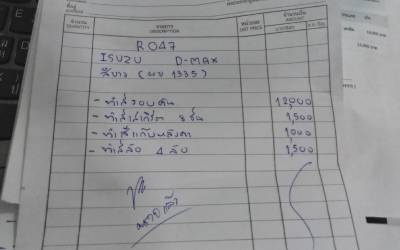 ที่อยู่
ADDRESS
จำนวน
QUANTITY
รายการ
DESCRIPTION
หน่วยละ
UNIT PRICE
จำนวนเงิน
AMOUNT
RO47
ISUZU D-MAX
สีขาว (ผข 1335)
- ทำสีรอบคัน 12,000
- ทำสีสเกิร์ต 8 ชิ้น 1,500
- ทำสีแก้มหลังคา 1,000
- ทำสีล้อ 4 ล้อ 1,500